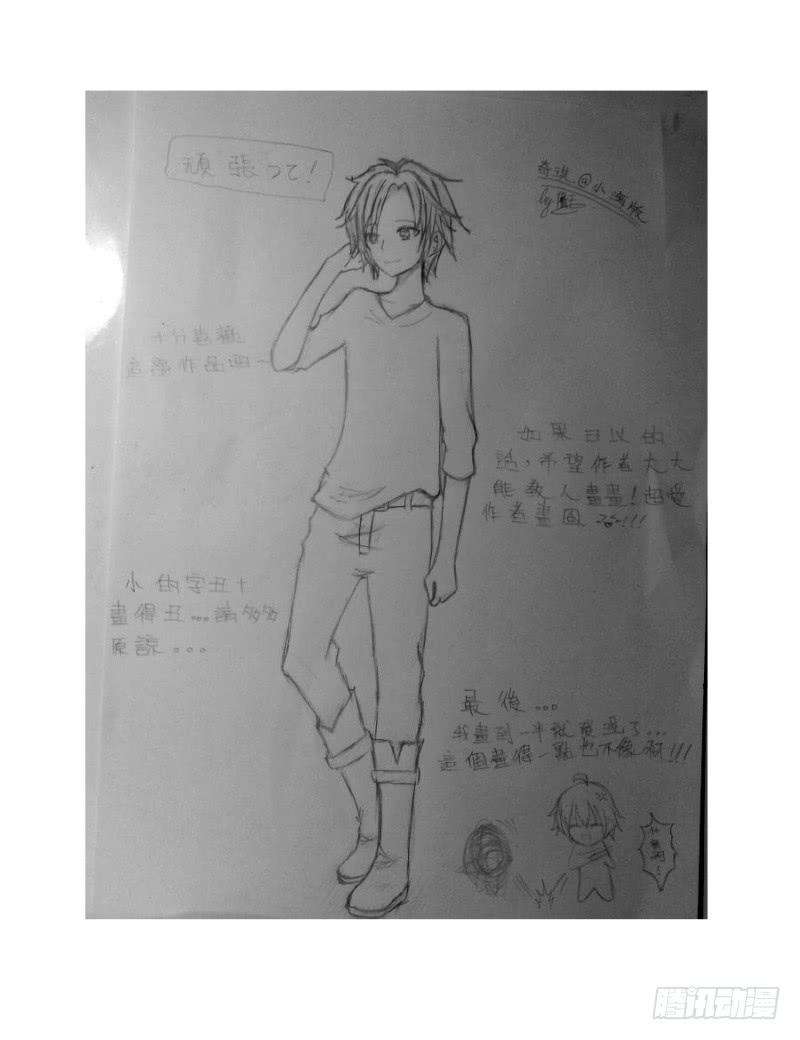 頑張って!
奇琪@小灣版
by
十分喜歡
這部作品喲~
如果可以的
話,希望作者大大
能教人畫畫!超愛
作者畫風 !!!
小的字丑+
畫得丑...請多多
原諒...
最後...
我畫到一半就 了...
這個畫得一點也不像啊!!!
腾讯动漫